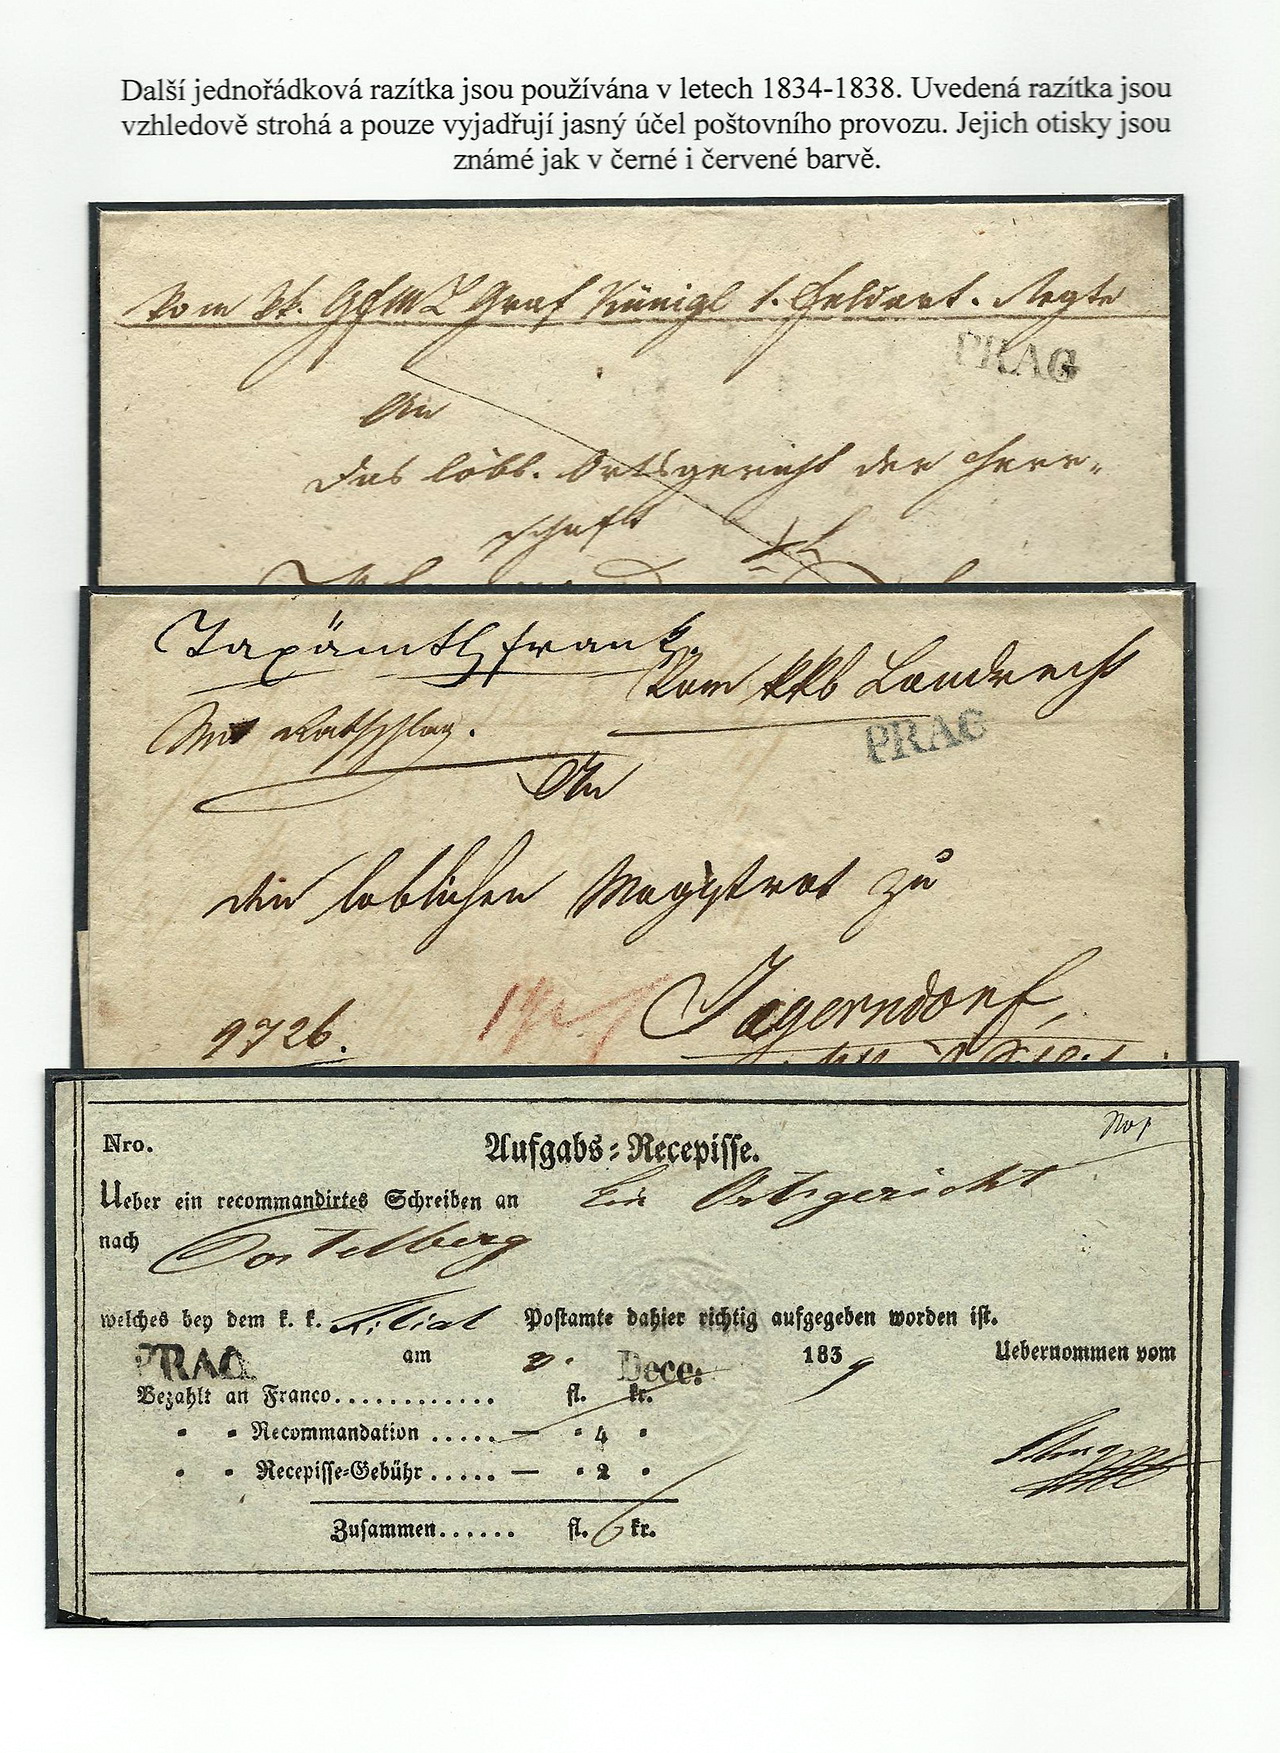 Další jednořádková razítka jsou používána v letech 1834-1838. Uvedená razítka jsou
vzhledově strohá a pouze vyjadřují jasný účel poštovního provozu. Jejich otisky jsou
známé jak v černé i červené barvě.
Vom kk. GFML Graf Künigl
PRAG
An
Das löbl. Ortsgericht der Herr-
schaft
Taxämtl frank
Vom kkb Landrecht
Mit Rathschlag.
PRAG
An
den loblichen Magistrat zu
Jägerndorf,
9726.
Nro.
Aufgabs=Recepisse.
Ueber ein recommandirtes Schreiben an Ein Ortsgericht
nach Postelberg
welches bey dem k. k. Filial Postamte dahier richtig aufgegeben worden ist.
PRAG am 2. Dece: 1839 Uebernommen vom
Bezahlt an Franco............ fl. kr.
" " Recommandation ..... — " 4 "
" " Recepisse=Gebühr ..... — " 2 "
Zusammen...... fl. 6 kr.